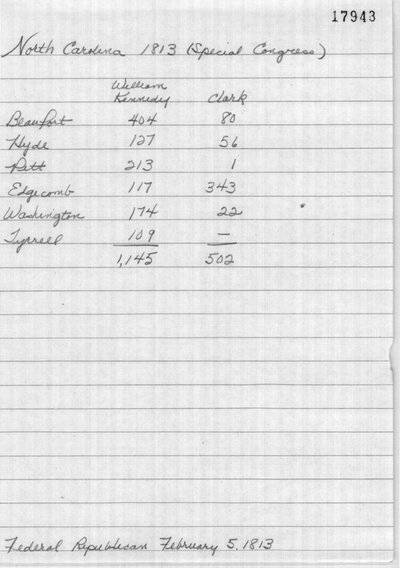 17943
North Carolina 1813 (Special Congress)
William
Kennedy Clark
Beaufort 404 80
Hyde 127 56
Pitt 213 1
Edgecomb 117 343
Washington 174 22
Tyrrell 109 —
1,145 502
Federal Republican February 5, 1813